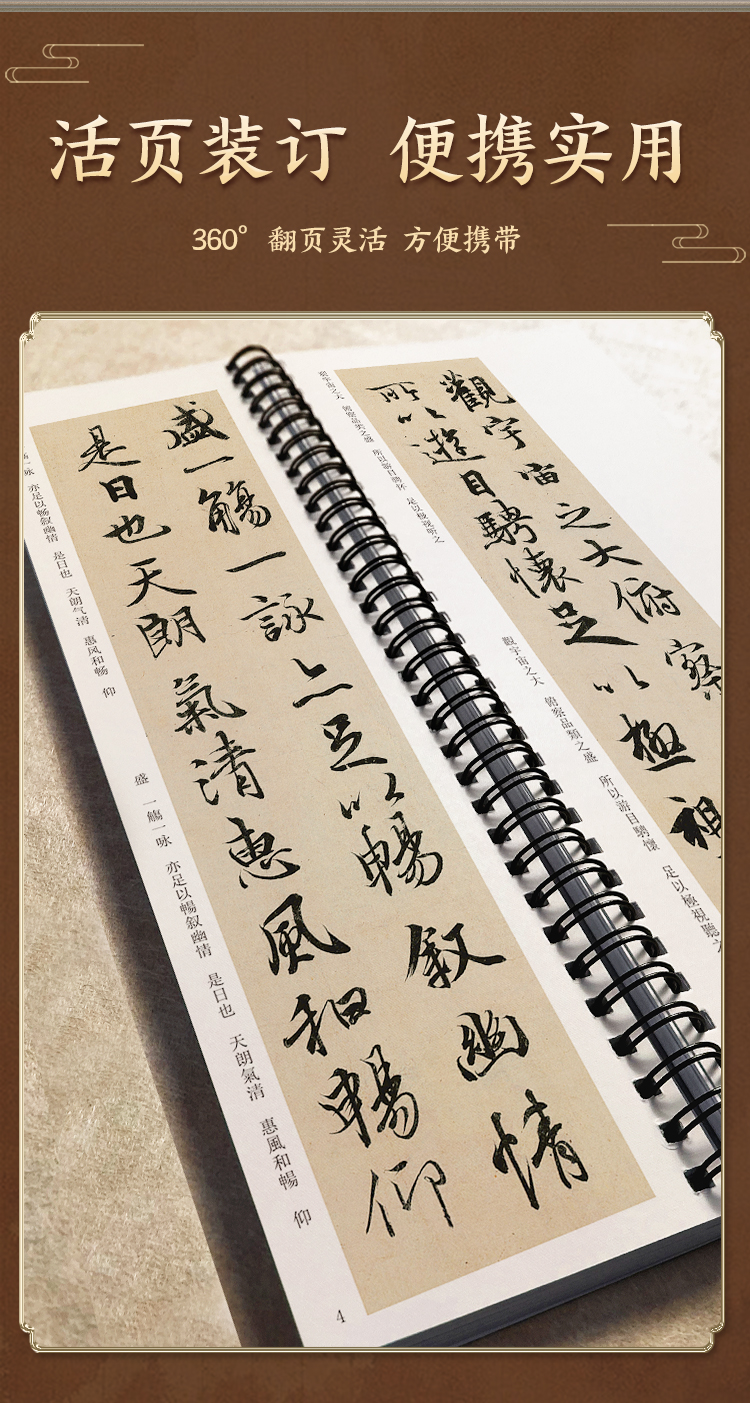 活页装订 便携实用
360° 翻页灵活 方便携带
觀宇宙之大俯察
所以遊目騁懷足以極視
观宇宙之大 俯察品类之盛 所以游目骋怀 足以极视听之
觀宇宙之大 俯察品類之盛 所以游目騁懷 足以極視聽
盛一觴一詠亦足以暢叙幽情
是日也天朗氣清惠風和暢仰
一咏 亦足以畅叙幽情 是日也 天朗气清 惠风和畅 仰
盛 一觴一咏 亦足以暢叙幽情 是日也 天朗氣清 惠風和暢 仰
4